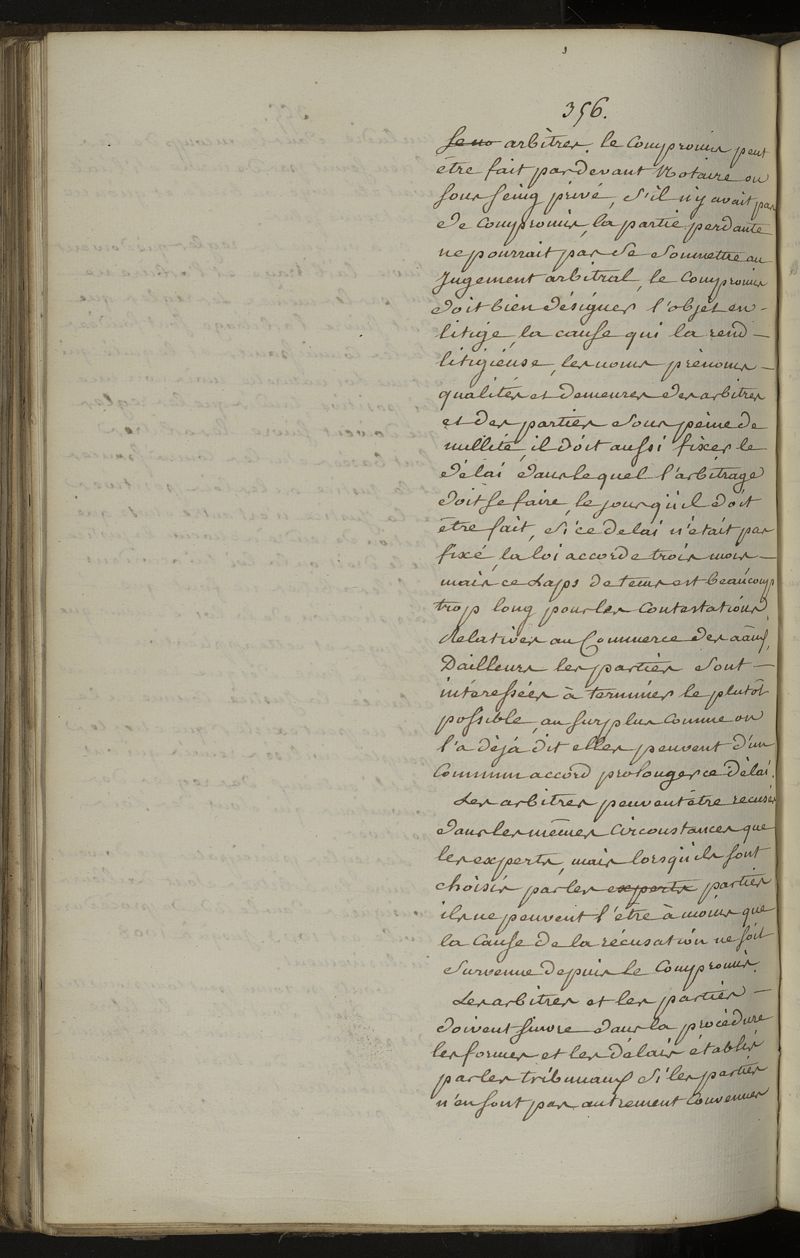 356.
arbitres. le Compromis peut
être fait pardevant Notaire ou
sous seing privé, s'il n'y avait pas
de Compromis, la partie perdante
ne pourrait pas se soumettre au
Jugement arbitral, le Compromis
doit bien désigner l'objet en-
litige, la cause qui la rend —
litigieuse, les noms prénoms —
qualités et demeures des arbitres
et des parties sous peine de
nullité, il doit aussi fixer le
délai dans lequel l'arbitrage
doit se faire, le jour qu'il doit
être fait, si ce delai n'était pas
fixé, la loi accorde trois mois —
mais ce Laps de tems est beaucoup
trop long pour les Contestations
Relatives au Commerce des
Dailleurs les parties sont —
intéressées à terminer le plutôt
possible, au surplus Comme on
l'a déjà dit elles peuvent d'un
Commun accord prolonger ce délai.
Les arbitres peuvent être recusés
dans les mêmes Circonstances que
les experts, mais lorsqu'ils sont
choisis par les experts parties
ils ne peuvent l'être à moins que
la Cause de la récusation ne soit
survenue depuis le Compromis.
Les arbitres et les parties —
doivent suivre dans la procédure
les formes et les délais établis
par les tribunaux si les parties
n'en sont pas autrement Convenues